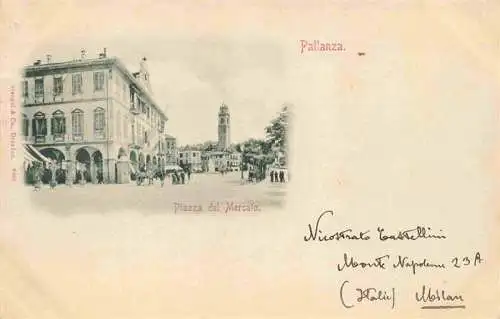 Pallanza.
Stengel & Co., Dresden
Piazza del Mercato.
Nicostrato Castellini
Monte Napoleone 23A
(Italie) Milan